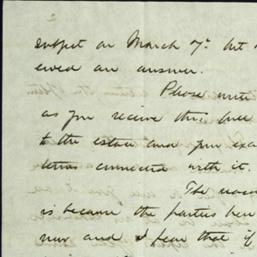 subject on March 7th. but
eived an answer.
Please write
as you receive this, full
to the estate and your exa
letters connected with it.
The reason
is because the parties here
now and I fear that if